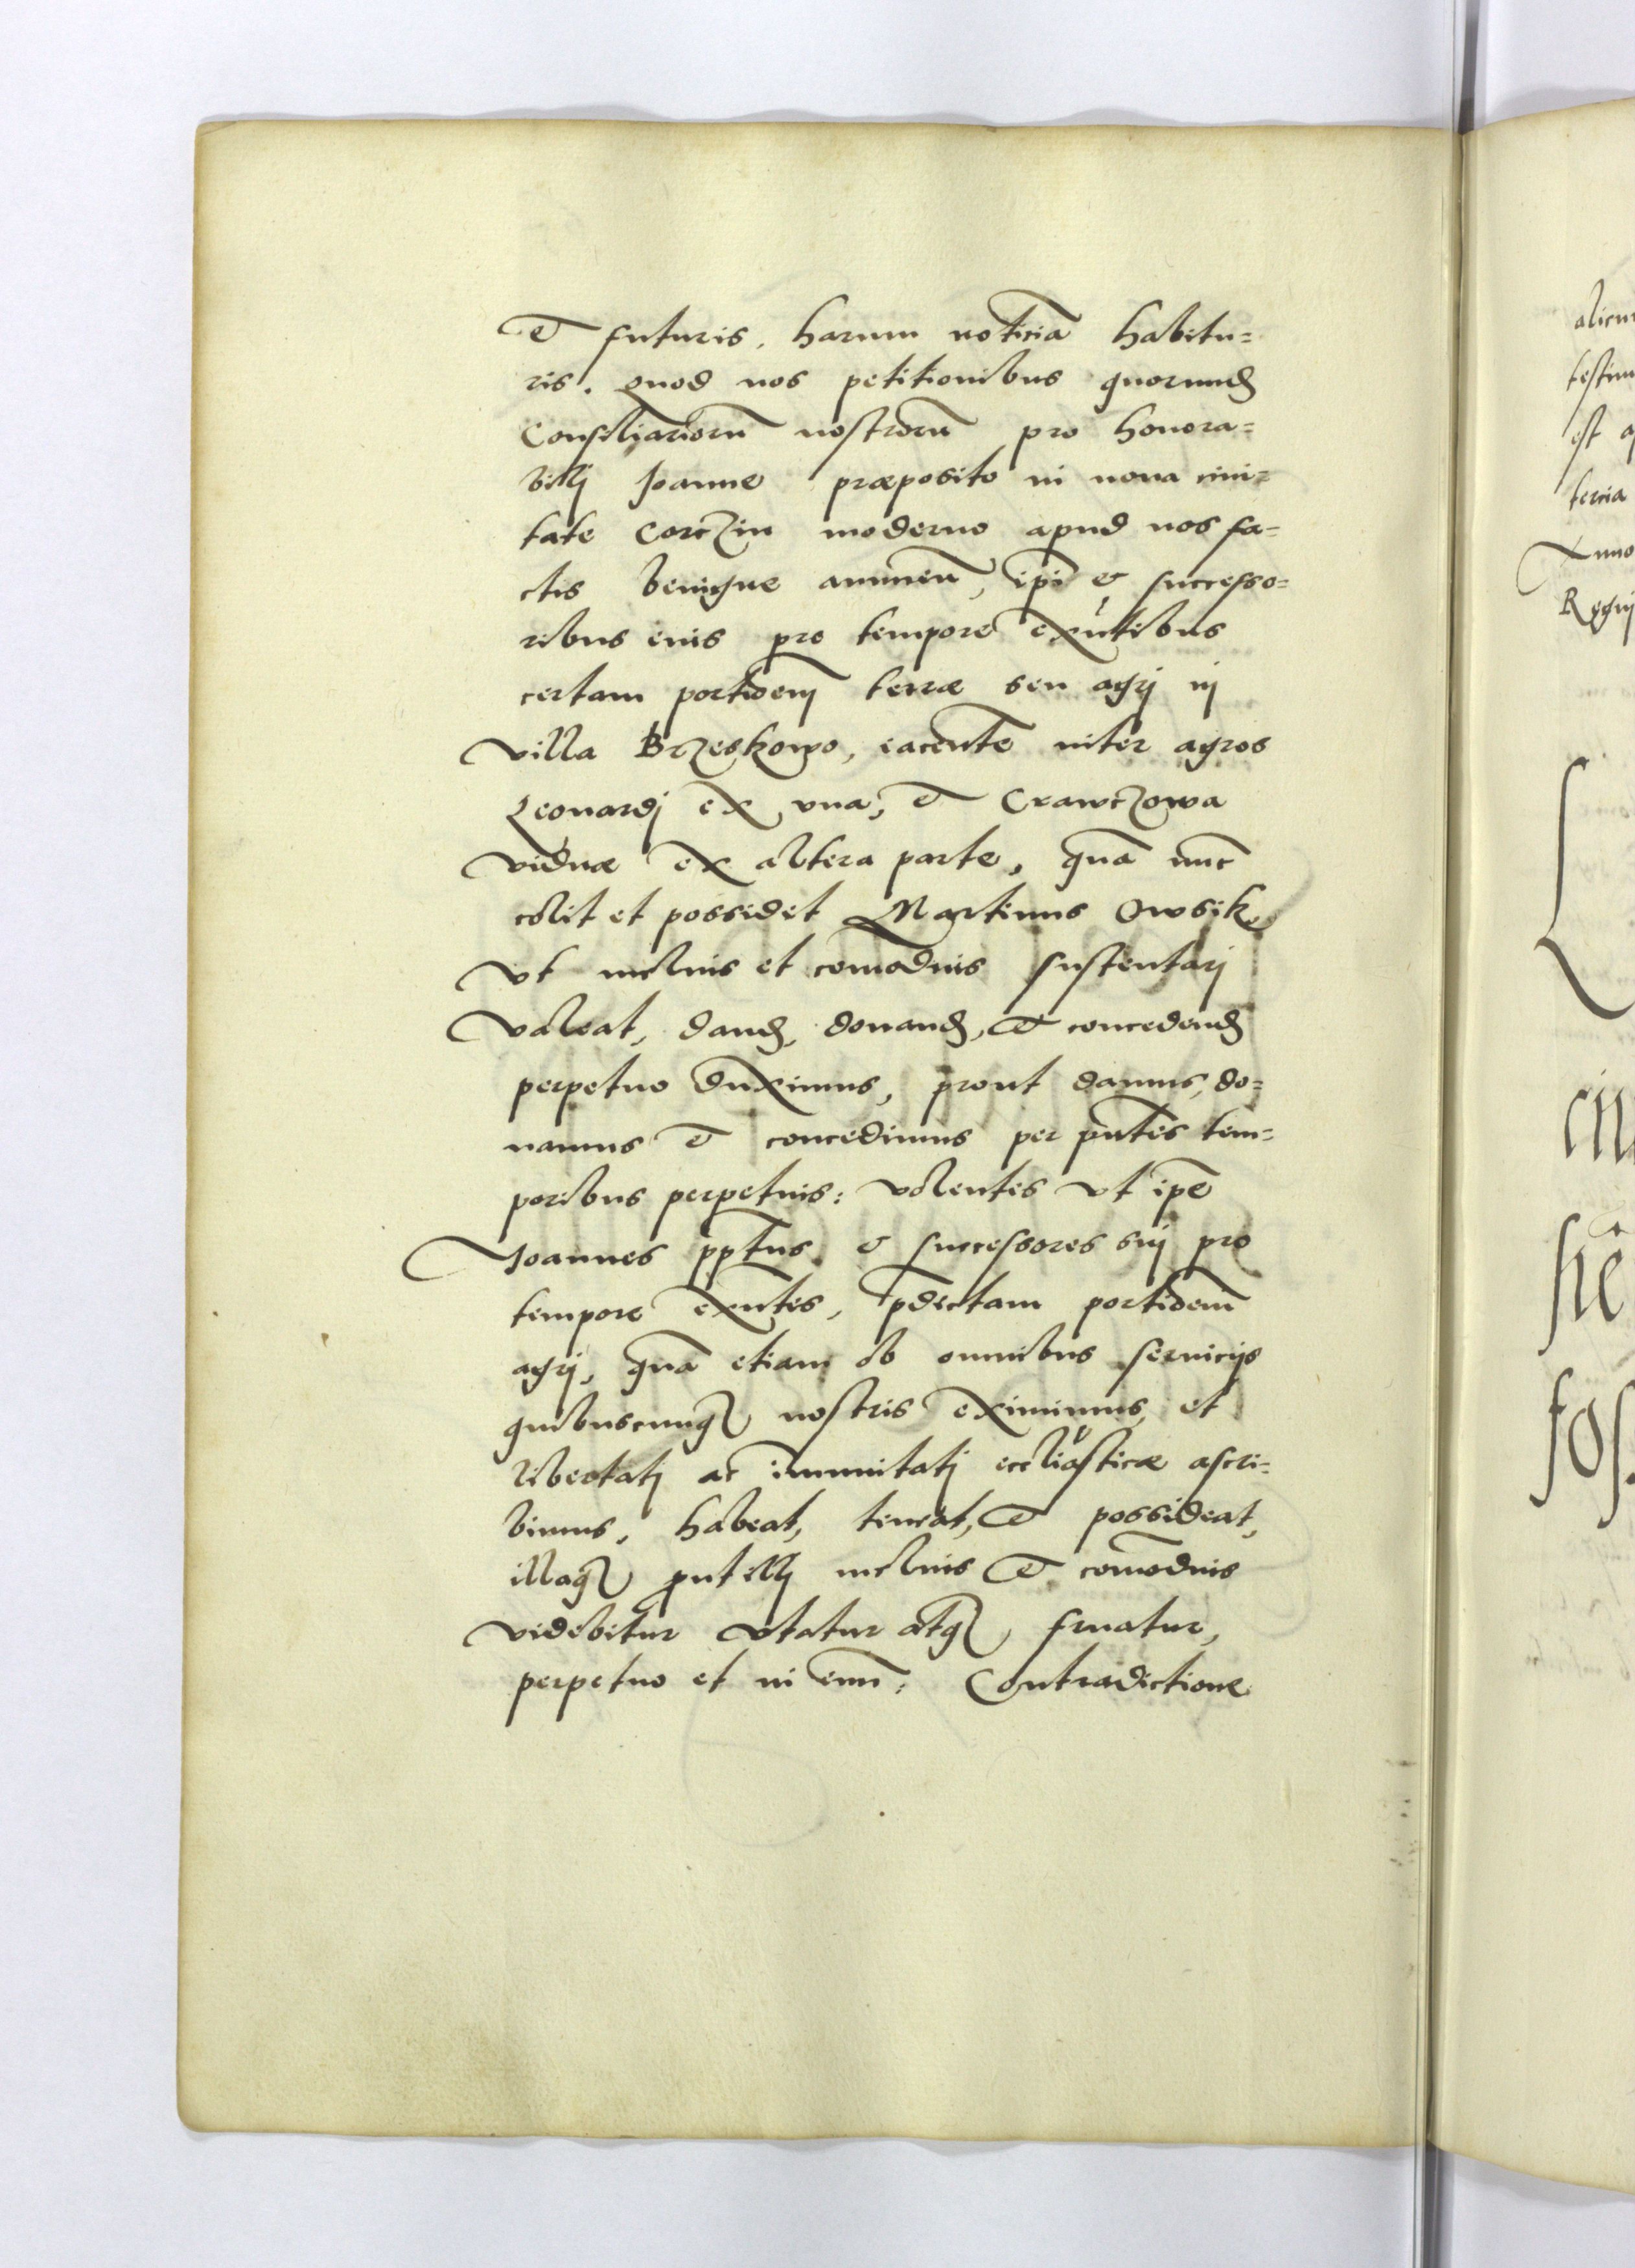 et futuris, harum noticiã habitu=
ris. Quod nos petitionibus quorund
Consiliariorũ nostrorũ pro honora=
bilj Joanne præposito in noua ciui=
tate Corczin moderno apud nos fa=
ctis benigne annuen̄, ip̄i & successo=
ribus eius pro tempore exn̄tibus
certam portioem̄ terræ seu agrj in
villa Brzeskowo, iacentē inter agros
Leonardj ex vna, et Crawczowa
viduæ ex altera parte, quã nuc̄
colit et possidet Martinus Owsik,
vt melius et comōdius sustentarj
valeat, dand, donand, et concedend
perpetuo duximus, prout damus, do=
namus et concedimus per pn̄tes tem=
poribus perpetuis: volentes vt ip̄e
Joannes pp̄tus & successores suj pro
tempore exn̄tes, p̄dictam portioem̄
agrj, quã etiam ab omnibus seruicijs
quibuscunq nostris eximimus et
libertatj ac im̄unitatj eccliasticæ ascri=
bimus, habeat, teneat, et possideat,
illaq put illj melius et comōdius
videbitur vtatur atq fruatur,
perpetuo et in euũ: Contradictione
alicu
testim
est a
tercia
Anno
Regnj
L